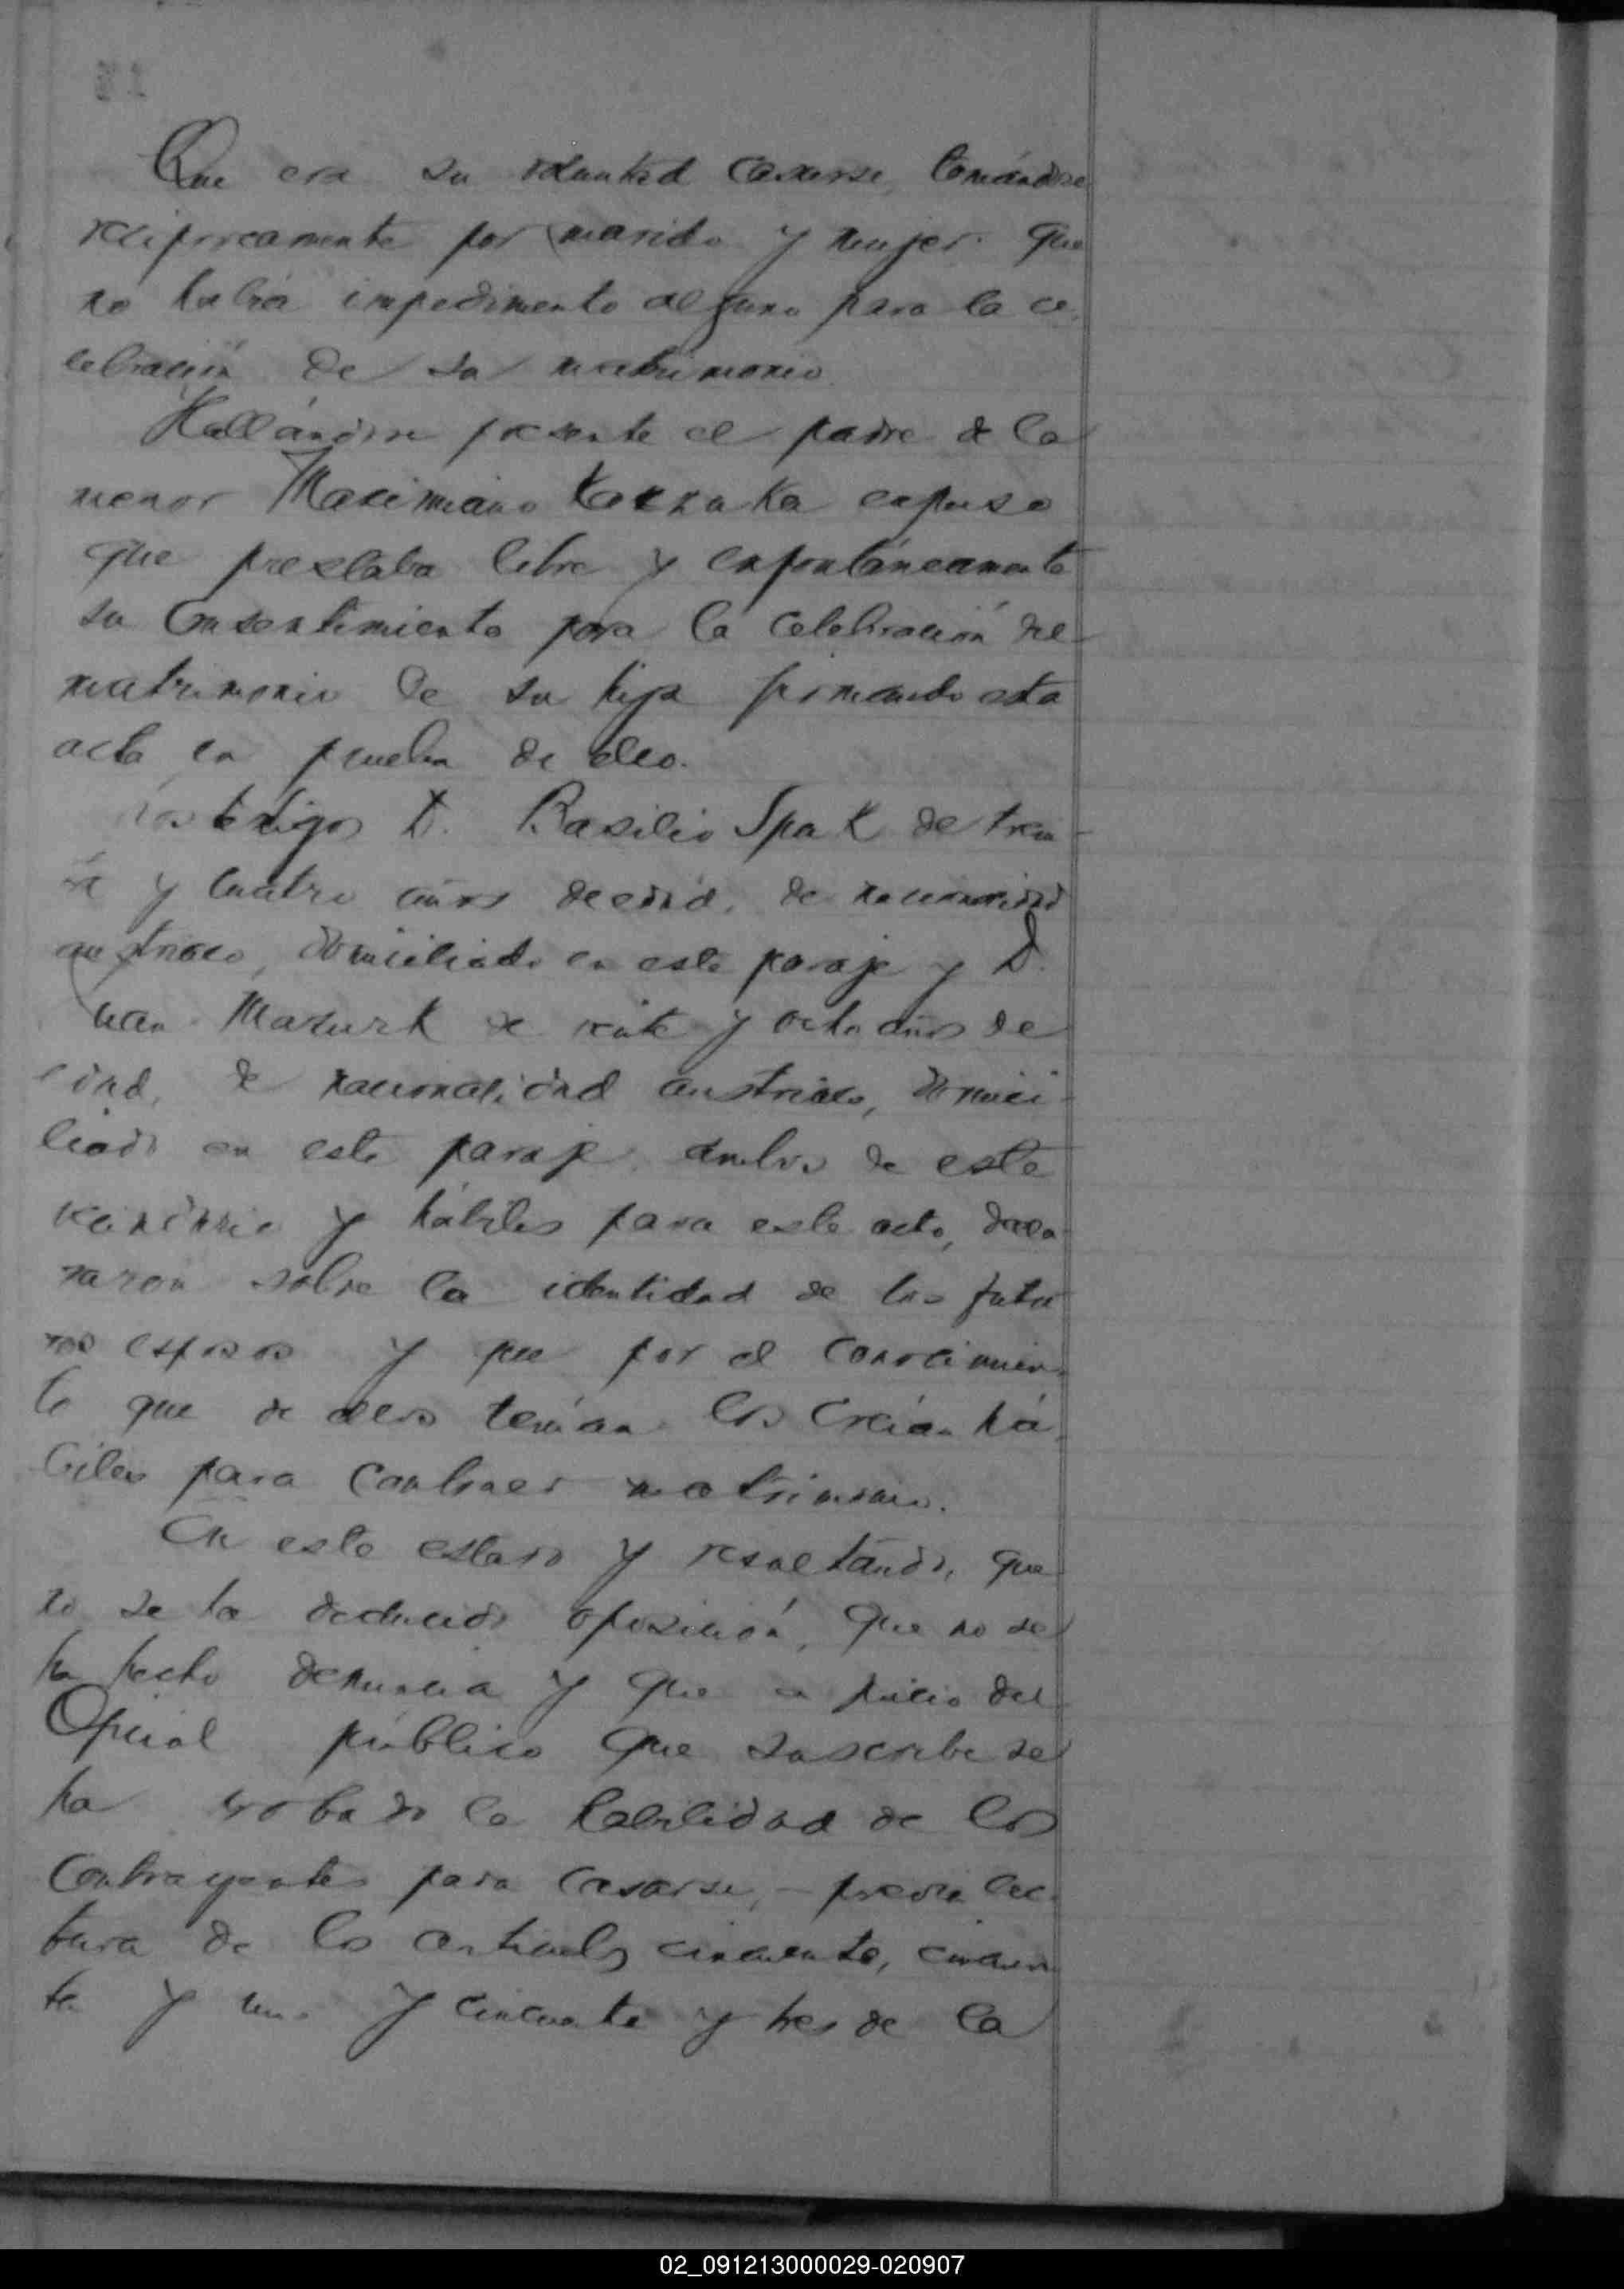 Que era su voluntad casarse, tomándose
recíprocamente por marido y mujer. Que
no había impedimento alguno para la ce
lebración de su matrimonio
Hallándose presente el padre de la
menor Maximiano expuso
que prestaba libre y expontáneamente
su consentimiento para la celebración del
matrimonio de su hija firmando esta
acta en prueba de ello.
Los testigos D. Basilio Spak de trein-
ta y cuatro años de edad, de nacionalidad
austriaco, domiciliado en este paraje y D.
Juan Mazurk de veinte y ocho años de
edad, de nacionalidad austriaco, domici-
liado en este paraje, ambos de este
vecindario y hábiles para este acto, decla
raron sobre la identidad de los futu
ros esposos y que por el conocimien
to que de ellos tenían los creían há
biles para contraer matrimonio.
En este estado y resultando, que
no se ha deducido oposición, que no se
ha hecho denuncia y que a juicio del
Oficial público que suscribe se
ha probado la habilidad de los
contrayentes para casarse, - previa lec
tura de los artículos cincuenta, cincuen
ta y uno y cincuenta y tres de la
02_091213000029-020907